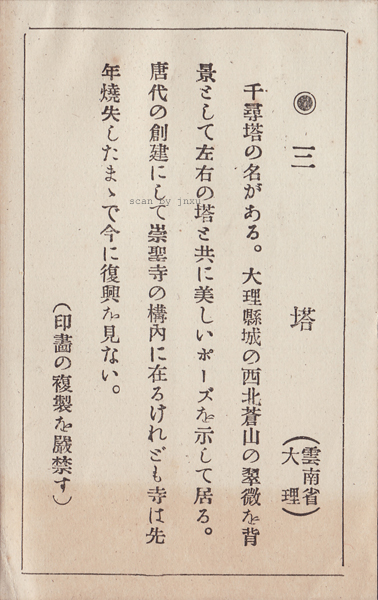 ◉ 三塔(雲南省大理)
千尋塔の名がある。大理縣城の西北蒼山の翠微を背
景として左右の塔と共に美しいポーズを示して居る。
唐代の創建にして崇聖寺の構內に在るけれども寺は先
年燒失したまゝで今に復興を見ない。
(印畵の複製を嚴禁す)
scan by jnxu